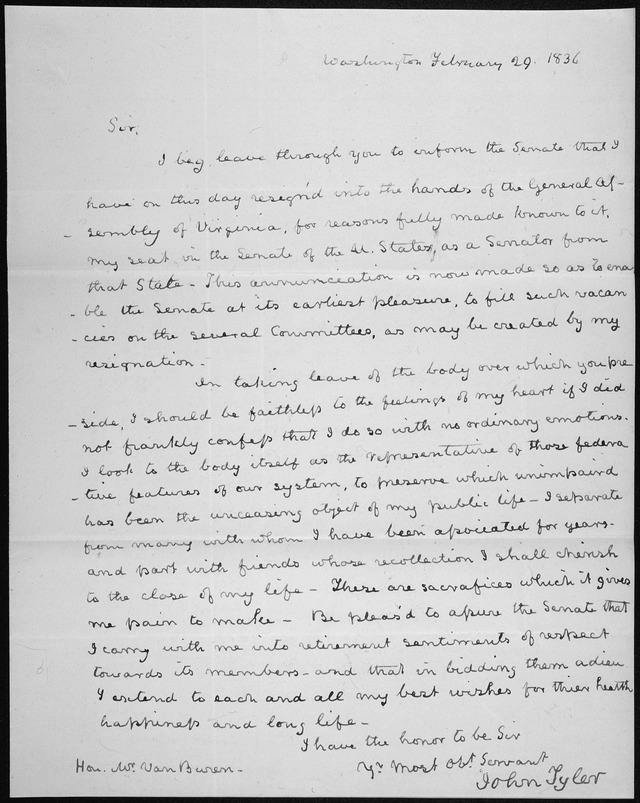 Washington February 29. 1836
Sir,
I beg leave through you to inform the Senate that I
have on this day resign'd into the hands of the General As-
-sembly of Virginia, for reasons fully made known to it,
my seat in the Senate of the U. States, as a Senator from
that State - This annunciation is now made so as to ena
-ble the Senate at its earliest pleasure, to fill such vacan
-cies on the several Committees, as may be created by my
resignation -
In taking leave of the body over which you pre
-side, I should be faithless to the feelings of my heart if I did
not frankly confess that I do so with no ordinary emotions.
I look to the body itself as the representative of those federa
-tive features of our system, to preserve which unimpaird
has been the unceasing object of my public life - I separate
from many with whom I have been associated for years -
and part with friends whose recollection I shall cherish
to the close of my life - These are sacrafices which it gives
me pain to make - Be pleas'd to assure the Senate that
I carry with me into retirement sentiments of respect
towards its members - and that in bidding them adieu
I extend to each and all my best wishes for thier health
happiness and long life -
I have the honor to be Sir
Yr Most Obt. Servant
John Tyler
Hon. Mr. Van Buren -